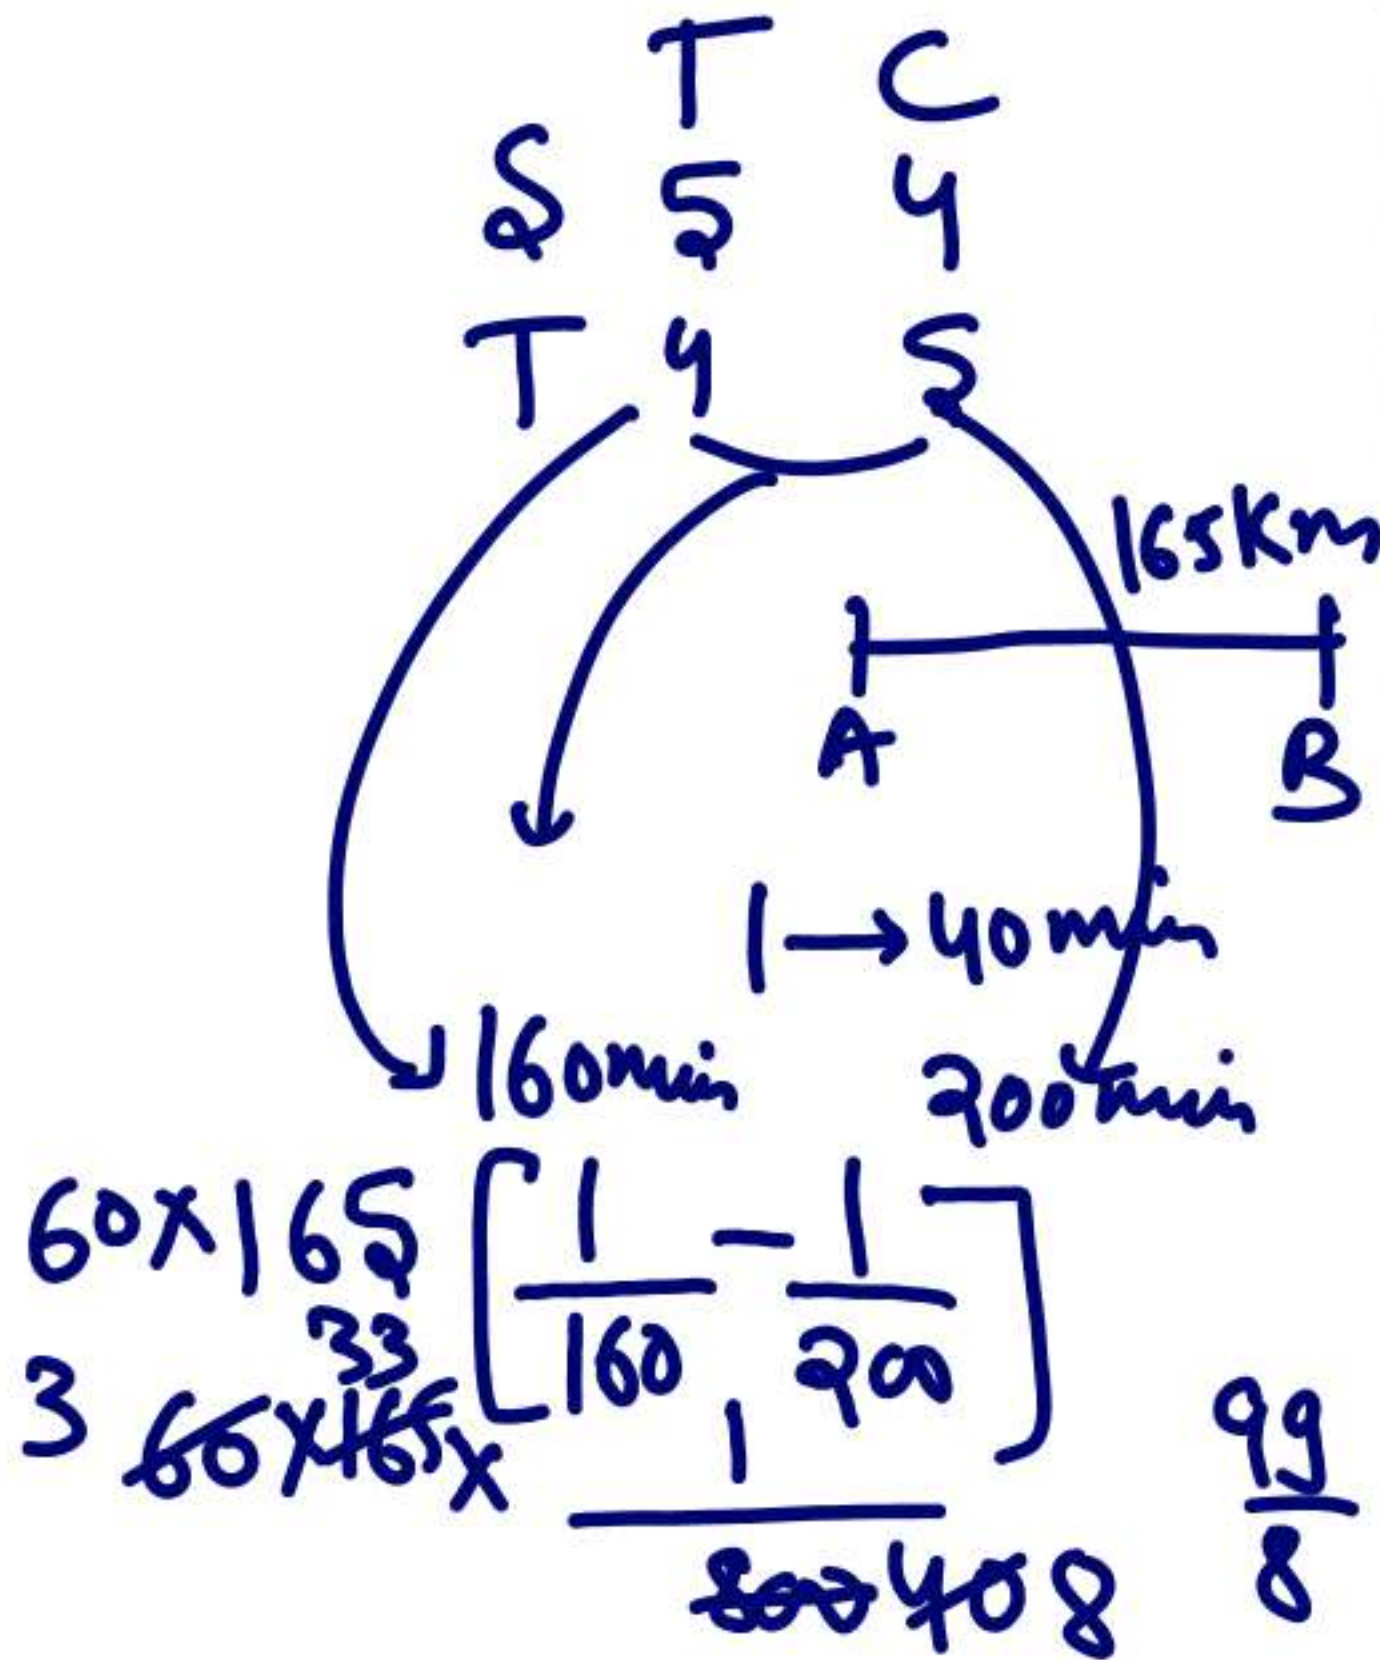 T C
S 5 4
T 4 5
165Km
A B
1 → 40min
160min 200min
60×165 [ 1/160 - 1/200 ]
33
3 60×165× 1/800 40 8
99/8